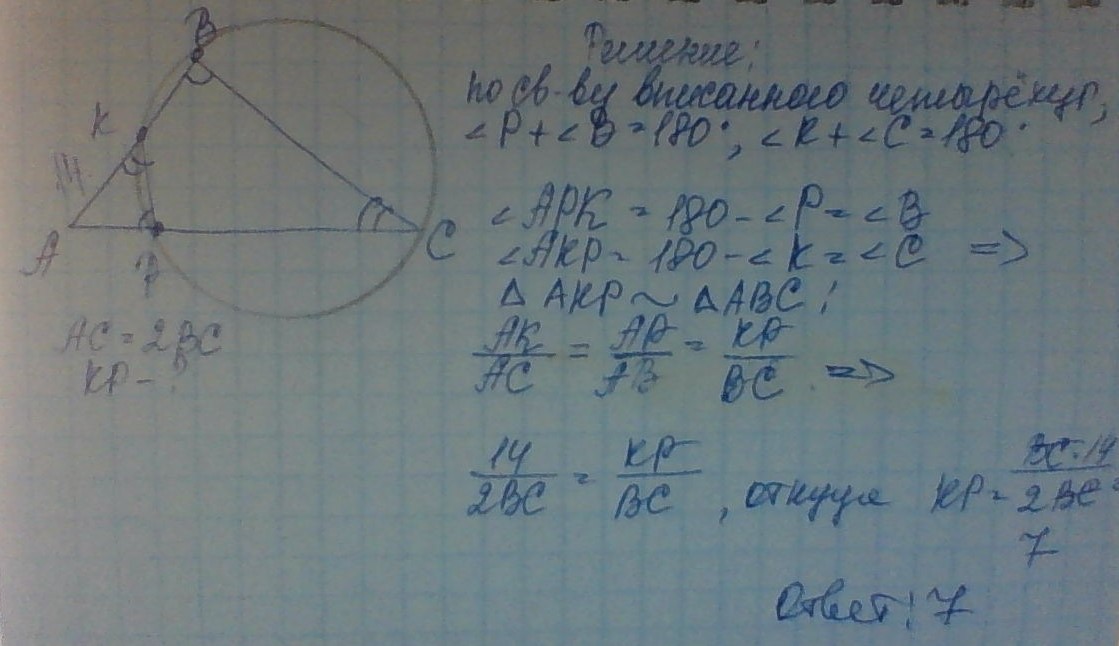 B
K
14
A
P
C
AC = 2BC
KP - ?
Решение:
по св-ву вписанного четырёхуг,
∠P + ∠B = 180°, ∠K + ∠C = 180°
∠APK = 180 - ∠P = ∠B
∠AKP = 180 - ∠K = ∠C =>
△ AKP ~ △ABC;
AK/AC = AP/AB = KP/BC =>
14/2BC = KP/BC, откуда KP = BC·14/2BC =
7
Ответ: 7